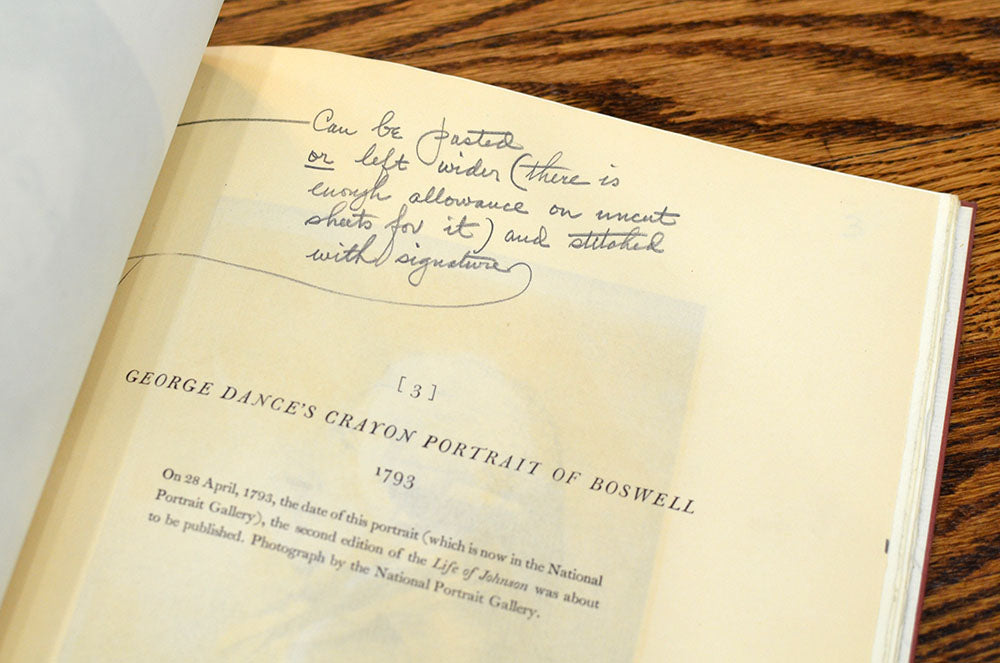 Can be pasted
or left wider (there is
enough allowance on uncut
sheets for it) and stitched
with signature
[3]
GEORGE DANCE'S CRAYON PORTRAIT OF BOSWELL
1793
On 28 April, 1793, the date of this portrait (which is now in the National
Portrait Gallery), the second edition of the Life of Johnson was about
to be published. Photograph by the National Portrait Gallery.